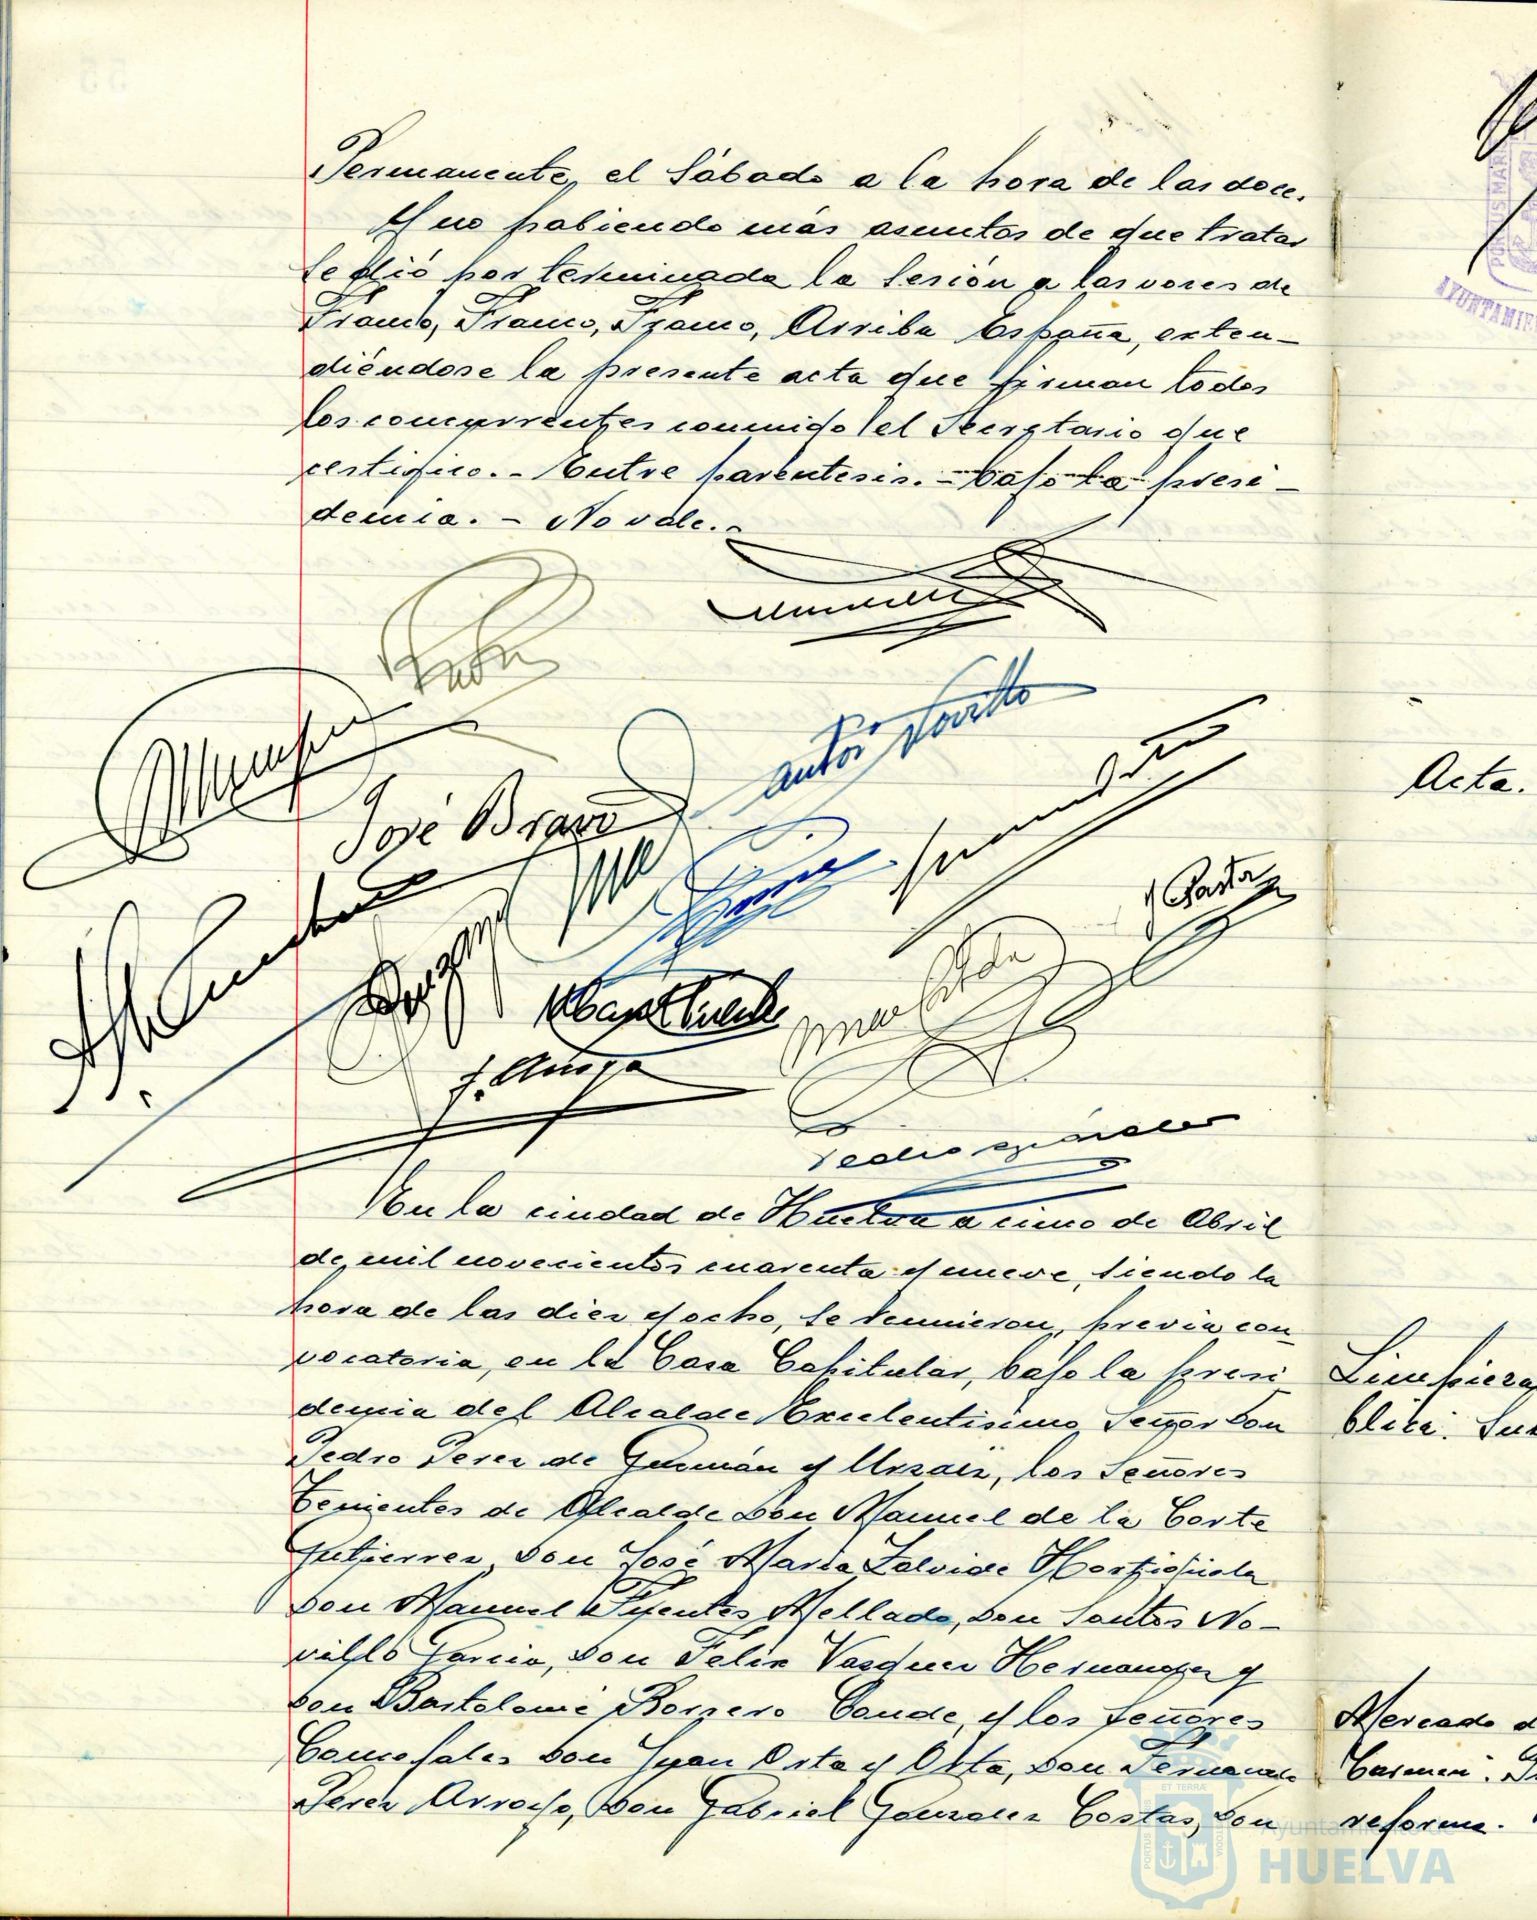 Permanente, el Sábado a la hora de las doce.
Y no habiendo más asuntos de que tratar
se dió por terminada la sesión a las voces de
Franco, Franco, Franco, Arriba España, exten-
diéndose la presente acta que firman todos
los concurrentes conmigo el Secretario que
certifico. - Entre parentesis. - bajo la presi-
dencia. - No vale. -
antos Novillo
José Bravo
J Pasta
F. Arroyo
Pedro González
En la ciudad de Huelva a cinco de Abril
de mil novecientos cuarenta y nueve, siendo la
hora de las diez y ocho, se reunieron, previa con
vocatoria, en la Casa Capitular, bajo la presi
dencia del Alcalde Excelentisimo Señor Don
Pedro Perez de Guzmán y Urzaiz, los Señores
Tenientes de Alcalde Don Manuel de la Corte
Gutierrez, Don José Maria Zalvide Hortigüela
Don Manuel Fuentes Mellado, Don Santos No-
villo Garcia, Don Felix Vazquez Hernandez y
Don Bartolomé Borrero Conde, y los señores
Concejales Don Juan Orta y Orta, Don Fernando
Perez Arroyo, Don Gabriel Gonzalez Costas, Don
PORTUS MAR
AYUNTAMIE
Acta.
Limpieza
blica. Su
Mercado d
Carmen.
reforma.
ET TERRÆ
PORTUS
CUSTODIA
Ayuntamiento de
HUELVA